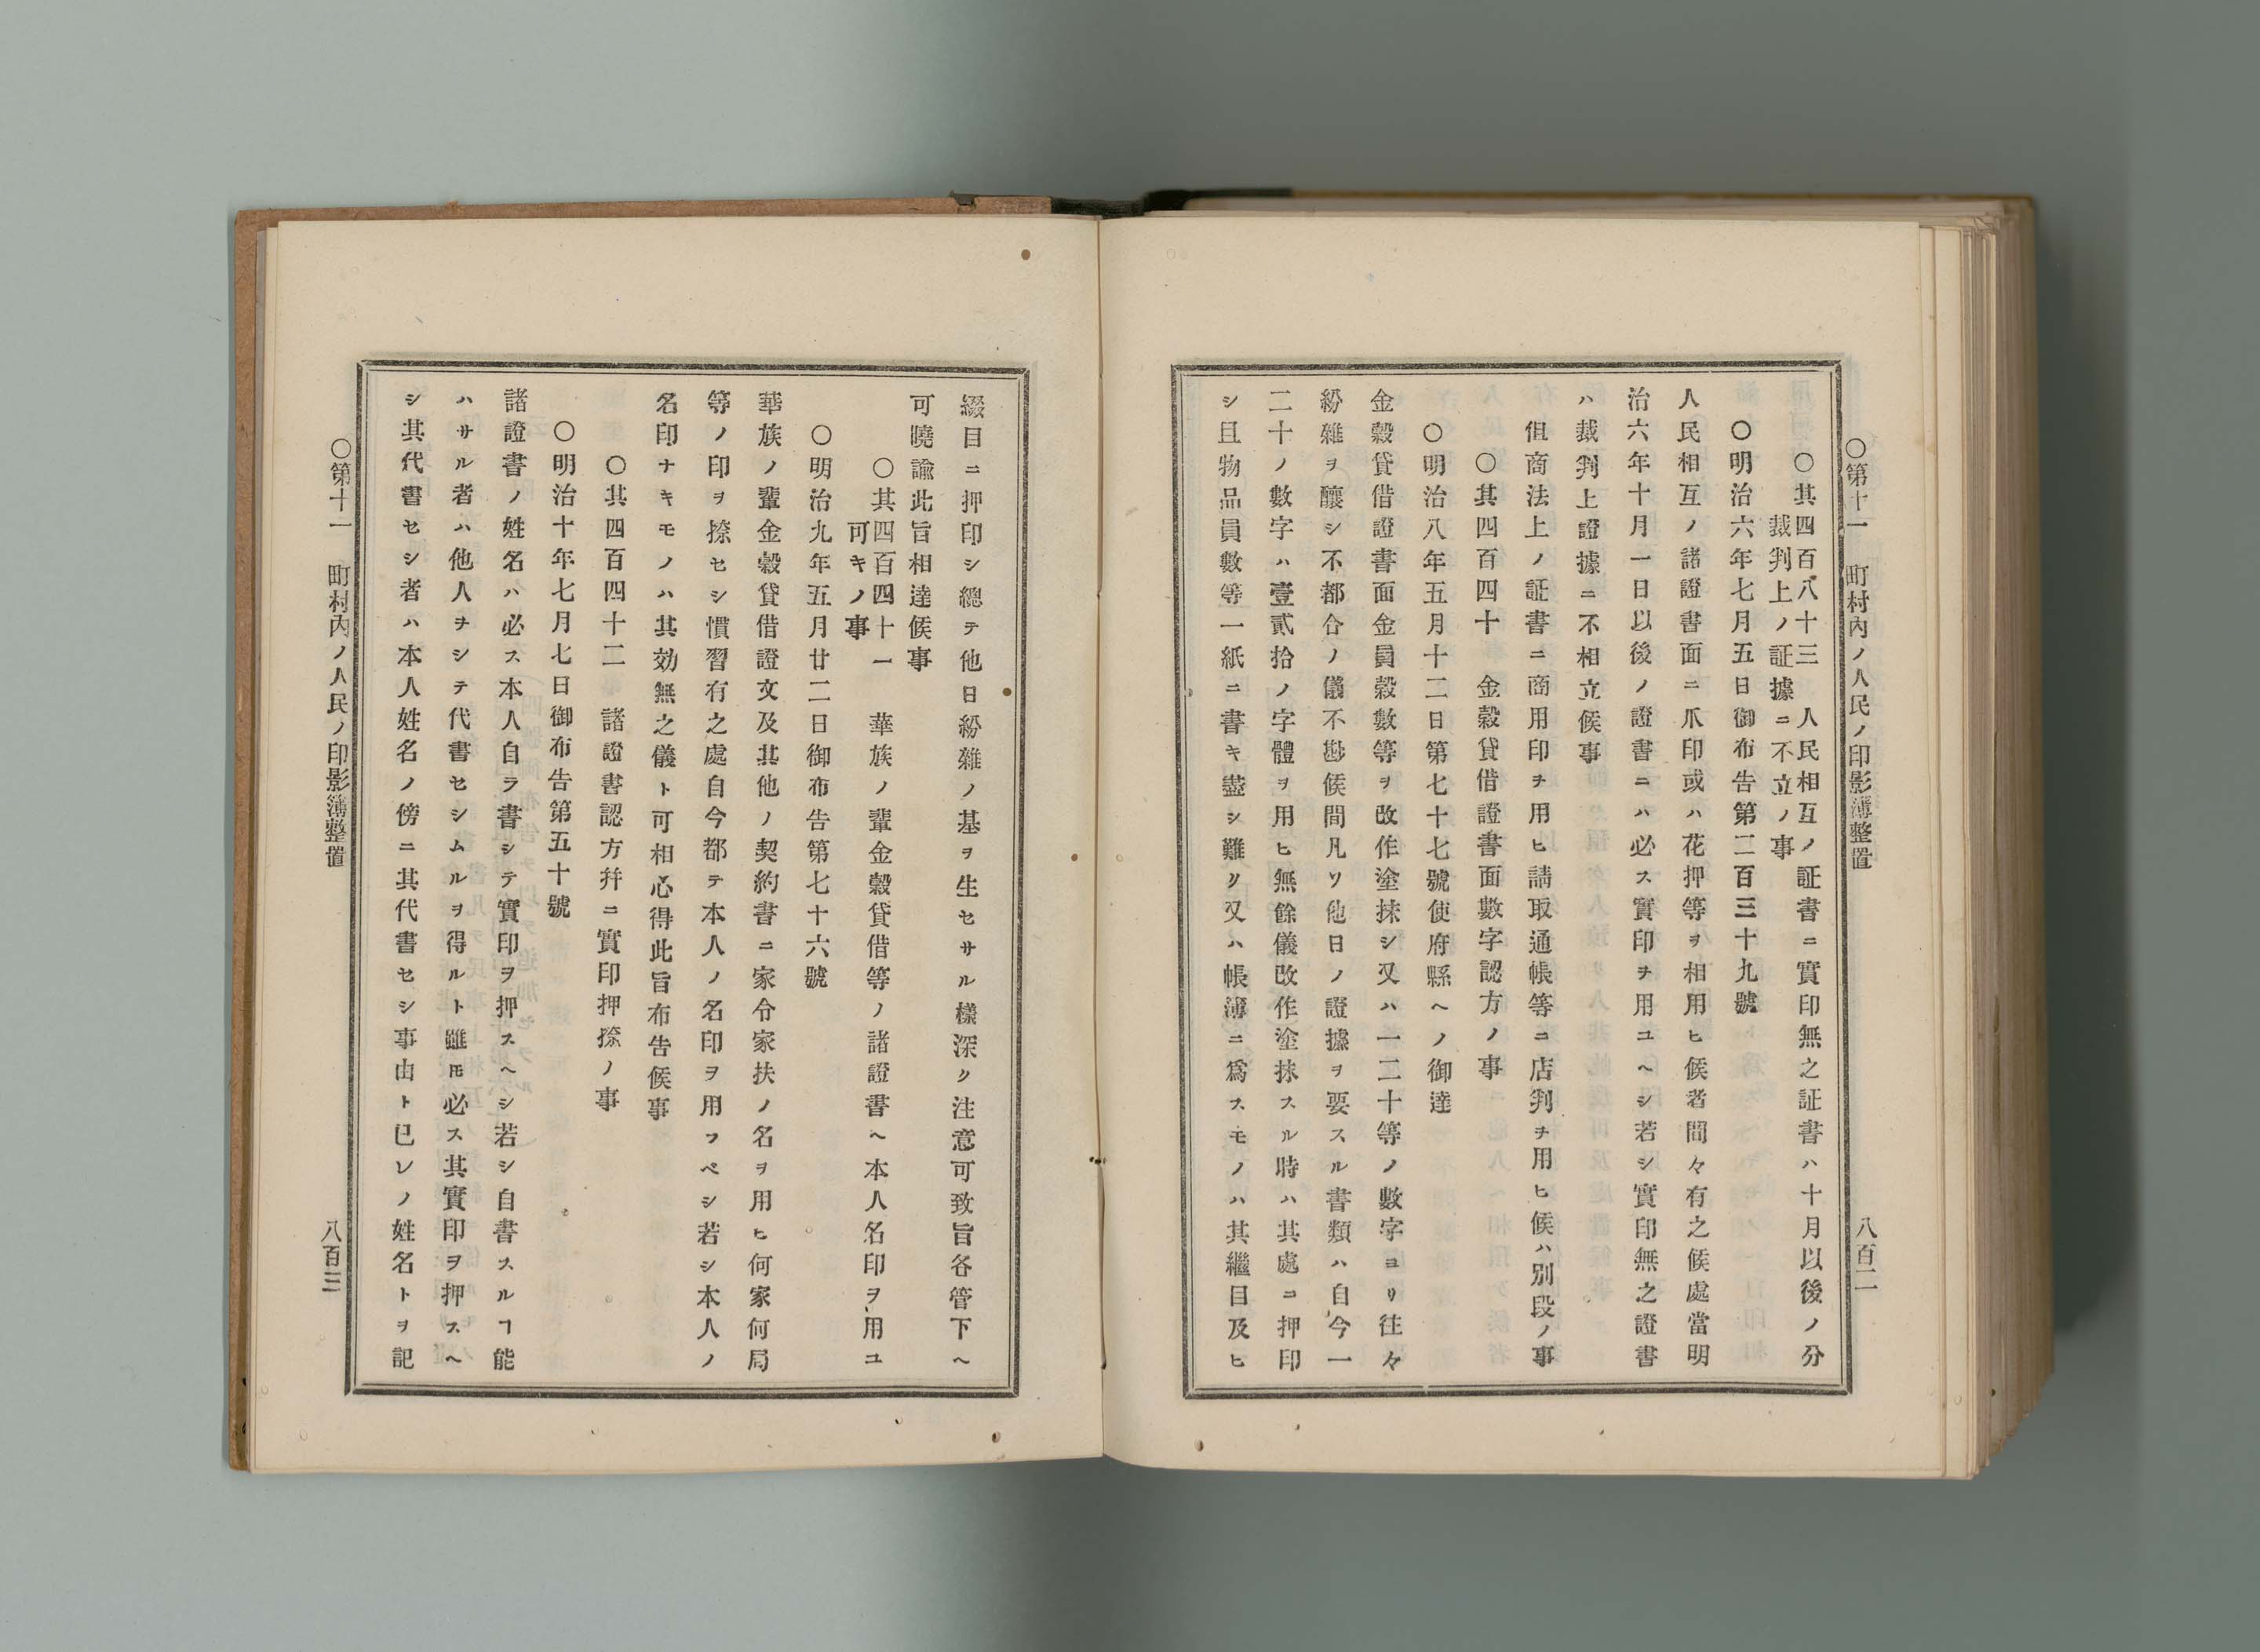 〇第十一　町村內ノ人民ノ印影簿整置　八百二
〇其四百八十三　人民相互ノ証書ニ實印無之証書ハ十月以後ノ分
裁判上ノ証據ニ不立ノ事
〇明治六年七月五日御布告第二百三十九號
人民相互ノ諸證書面ニ爪印或ハ花押等ヲ相用ヒ候者間々有之候處當明
治六年十月一日以後ノ證書ニハ必ス實印ヲ用ユヘシ若シ實印無之證書
ハ裁判上證據ニ不相立候事
但商法上ノ証書ニ商用印ヲ用ヒ請取通帳等ニ店判ヲ用ヒ候ハ別段ノ事
〇其四百四十　金穀貸借證書面數字認方ノ事
〇明治八年五月十二日第七十七號使府縣ヘノ御達
金穀貸借證書面金員穀數等ヲ改作塗抹シ又ハ一二十等ノ數字ヨリ往々
紛雜ヲ釀シ不都合ノ儀不尠候間凡ソ他日ノ證據ヲ要スル書類ハ自今一
二十ノ數字ハ壹貳拾ノ字體ヲ用ヒ無餘儀改作塗抹スル時ハ其處ニ押印
シ且物品員數等一紙ニ書キ盡シ難ク又ハ帳簿ニ爲スモノハ其繼目及ヒ
綴目ニ押印シ總テ他日紛雜ノ基ヲ生セサル樣深ク注意可致旨各管下ヘ
可曉諭此旨相達候事
〇其四百四十一　華族ノ輩金穀貸借等ノ諸證書ヘ本人名印ヲ用ユ
可キノ事
〇明治九年五月廿二日御布告第七十六號
華族ノ輩金穀貸借證文及其他ノ契約書ニ家令家扶ノ名ヲ用ヒ何家何局
等ノ印ヲ捺セシ慣習有之處自今都テ本人ノ名印ヲ用フベシ若シ本人ノ
名印ナキモノハ其効無之儀ト可相心得此旨布告候事
〇其四百四十二　諸證書認方幷ニ實印押捺ノ事
〇明治十年七月七日御布告第五十號
諸證書ノ姓名ハ必ス本人自ラ書シテ實印ヲ押スヘシ若シ自書スルヿ能
ハサル者ハ他人ヲシテ代書セシムルヲ得ルト雖𪜈必ス其實印ヲ押スヘ
シ其代書セシ者ハ本人姓名ノ傍ニ其代書セシ事由ト已レノ姓名トヲ記
〇第十一　町村內ノ人民ノ印影簿整置　八百三